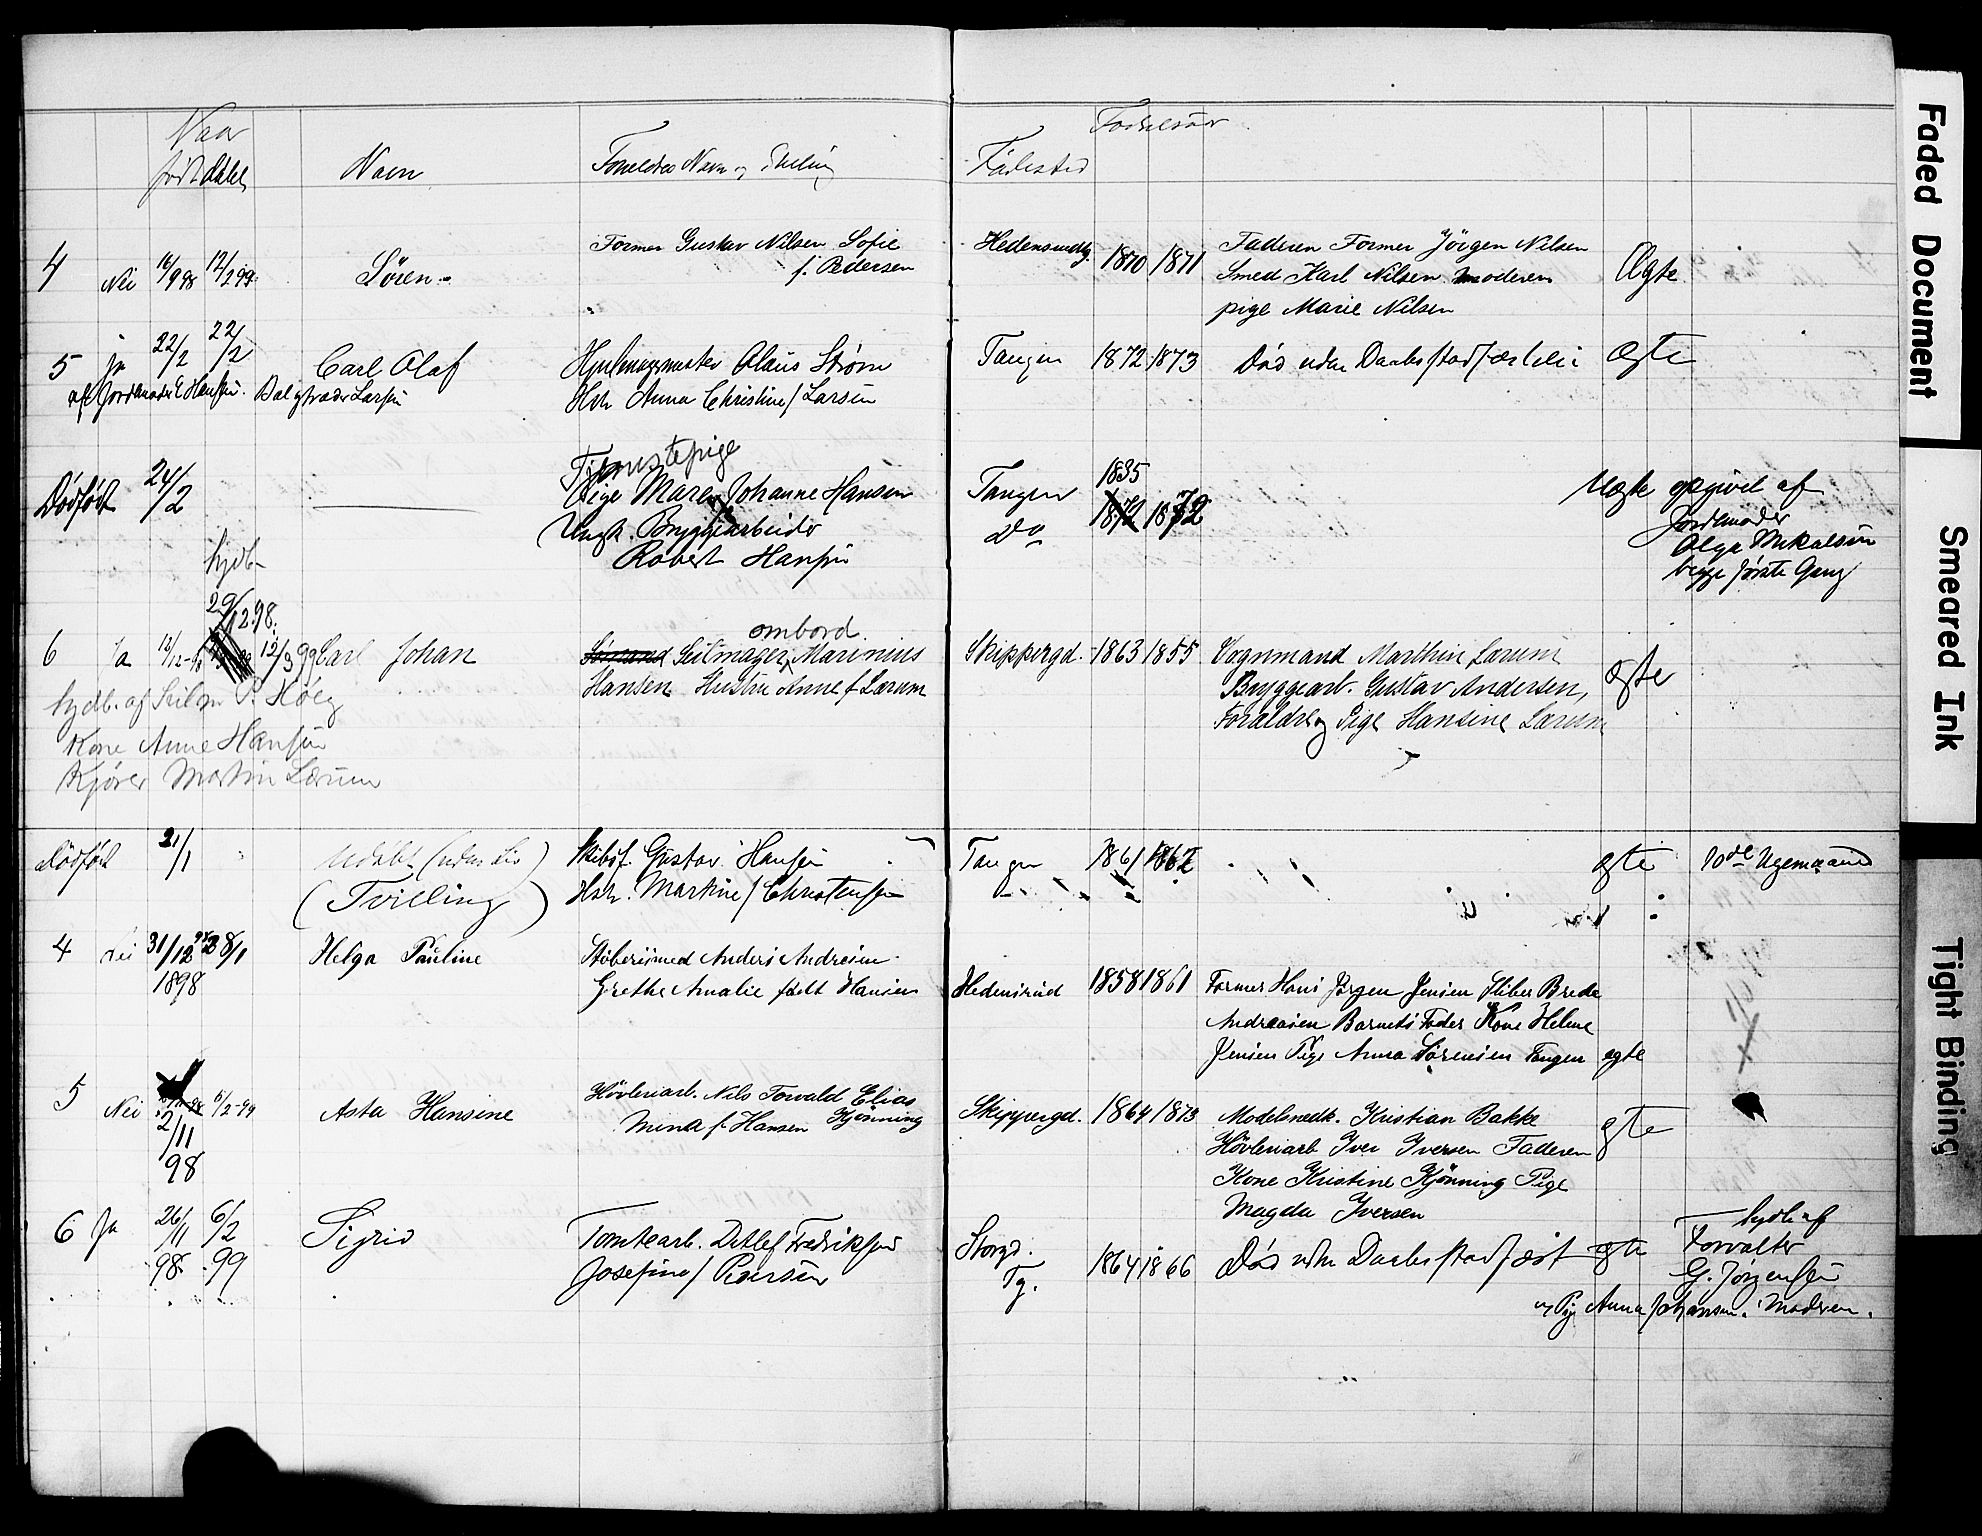 Naar Fødselsaar
født døbt Navn Forældres Navn og Stilling Fødested
4 Nei 16/9 98 12/2 99 Sören Former Gustav Nilsen Sofie
f. Pedersen
Hedensrudg. 1870 1871 Faderen Former Jörgen Nilsen
Smed Karl Nilsen moderen
pige Marie Nilsen
Ægte
5 ja 22/2 22/2 Carl Olaf Hjulmagermester Olaus Strøm
Hstr Anna Christine f Larsen
af Jordmoder E Hansen
Tangen 1872 1873 Død uden Daabsstadfæstelse
ægte
Dødfødt 24/2 Tjenestepige
Pige Maren Johanne Hansen
Ungk. Bryggearbeider
Robert Hansen
Tangen 1835
Do 1872 1872
Uægte opgivet af
Jordmoder
Olga Mikalsen
begge første Gang
hjdb.
29/12 98.
6 Ja 12/12-98 12/3 99 Carl Johan
ombord.
Seilmager Marinius
Hansen Hustru Anne f Larum
Skippergd. 1863 1855 Vognmand Marthin Larum
Bryggearb. Gustav Andersen,
Forældre og Pige Hansine Larum
ægte
hjdb. af Seilm P. Høeg
Kone Anne Hansen
Kjører Martin Larum
Dødfødt 21/1 Udøbt (uden Liv)
(Tvilling)
Skibsf. Gustav Hansen
Hstr. Martine f Christensen
Tangen 1861 1862
ægte 10de Ugemaaned
4 Nei 31/12 8/1
1898
Helga Pauline Stöberismed Anders Andresen
Grethe Amalie født Hansen
Hedensrud 1858 1861 Former Hans Jørgen Jensen Støber Brede
Andreasen Barnets Fader Kone Helene
Jensen Pige Anna Sørensen Tangen ægte
5 Nei 2/11
98
6/2-99 Asta Hansine Hövleriarb. Nils Torvald Elias
Mina f. Hansen Kjönning
Skippergd. 1864 1873 Modelsnedk. Kristian Bakke
Hövleriarb Iver Iversen Faderen
Kone Kristine Kjönning Pige
Magda Iversen
ægte
6 Ja 26/11 6/2
98 99
Sigrid Tomtearb. Detlef Fredriksen
Josefine f Pedersen
Storgd.
Tg.
1864 1866 Død uden Daabsstadfæst ægte
hjdb af
Forvalter
G. Jørgensen
og Pig Anna Johansen. Moderen.
Faded Document
Smeared Ink
Tight Binding